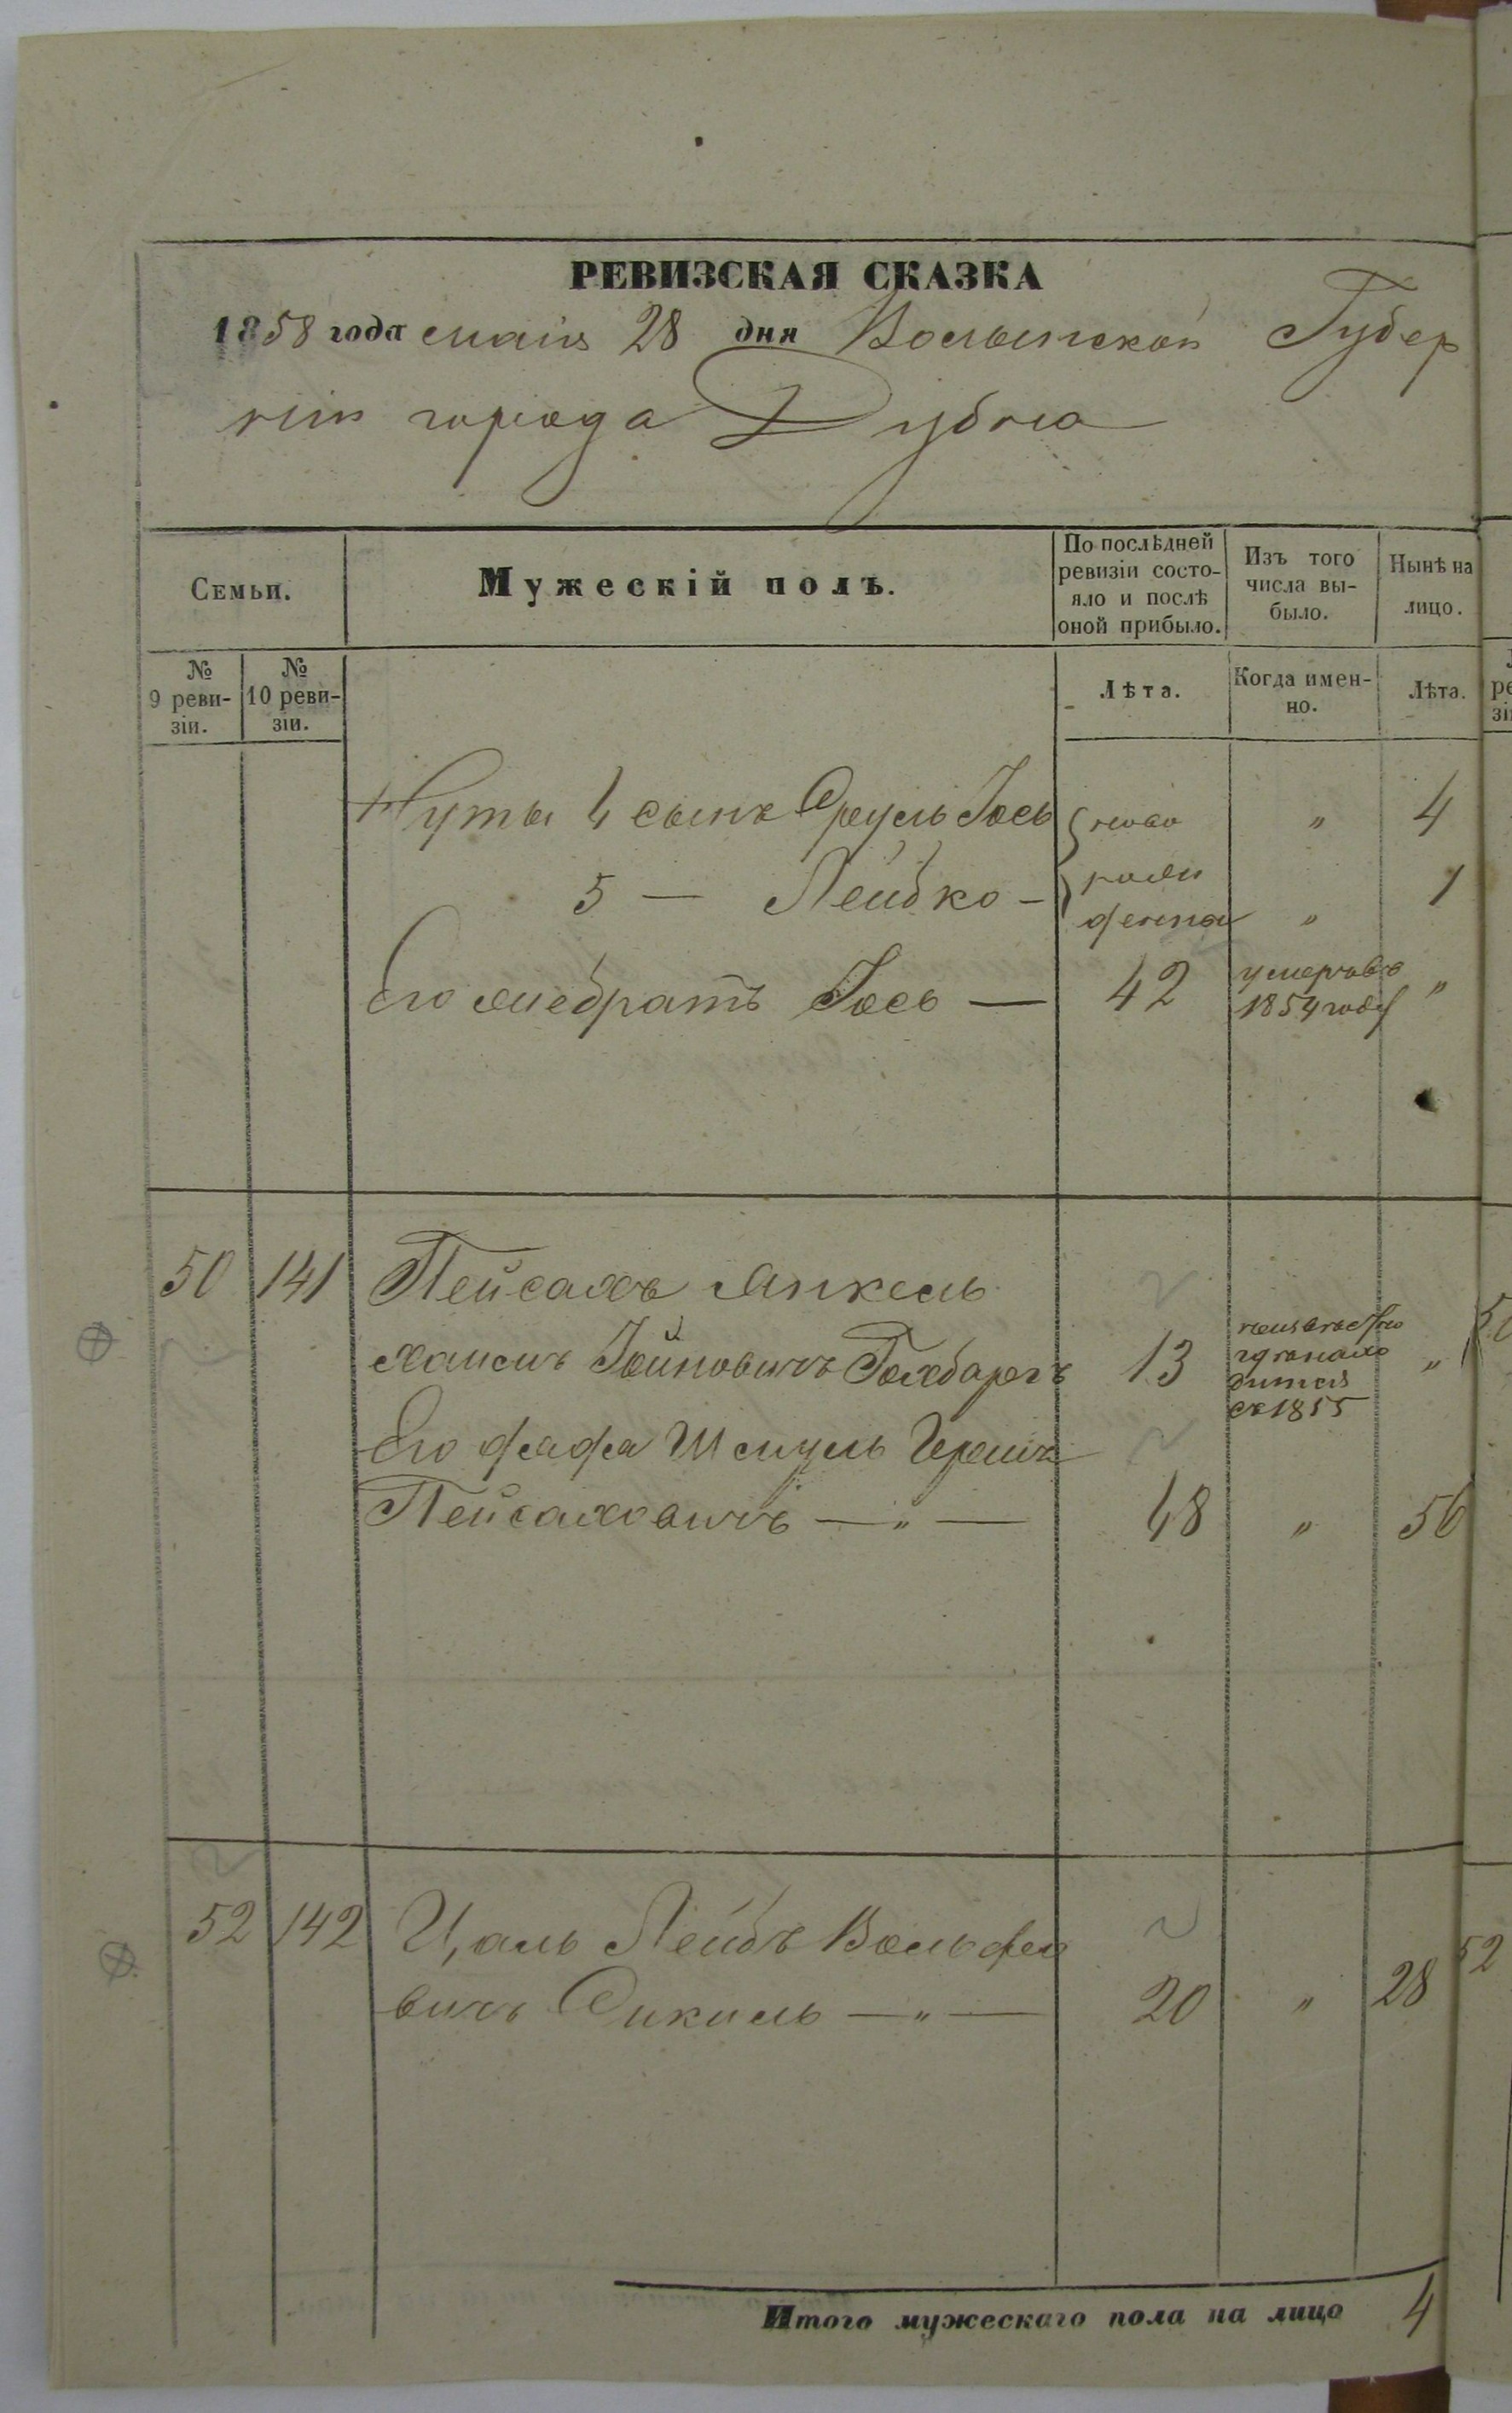 РЕВИЗСКАЯ СКАЗКА
1858 года маія 28 дня Волынской Губер
ніи города Дубна
Семьи.
Мужескій полъ.
По послѣдней
ревизіи состо-
яло и послѣ
оной прибыло.
Изъ того
числа вы-
было.
Нынѣ на
лицо.
№
9 реви-
зіи.
№
10 реви-
зіи.
Лѣта.
Когда имен-
но.
Лѣта.
Нуты 4 сынъ Сруль Іось ново " 4
5 — Лейбко — рожденна " 1
Его же братъ Іось — 42 умеръ въ 1854 году "
50 141 Пейсахъ Янкель
Хаимъ Іойновичъ Голдбаргъ 13 неизвестно где находится съ 1855 "
Его дядя Шмуль Гершъ
Пейсаховичъ — " — 48 " 56
52 142 Цаль Лейбъ Вольфо
вичъ Сикиль — " — 20 " 28
52
Итого мужескаго пола на лицо 4